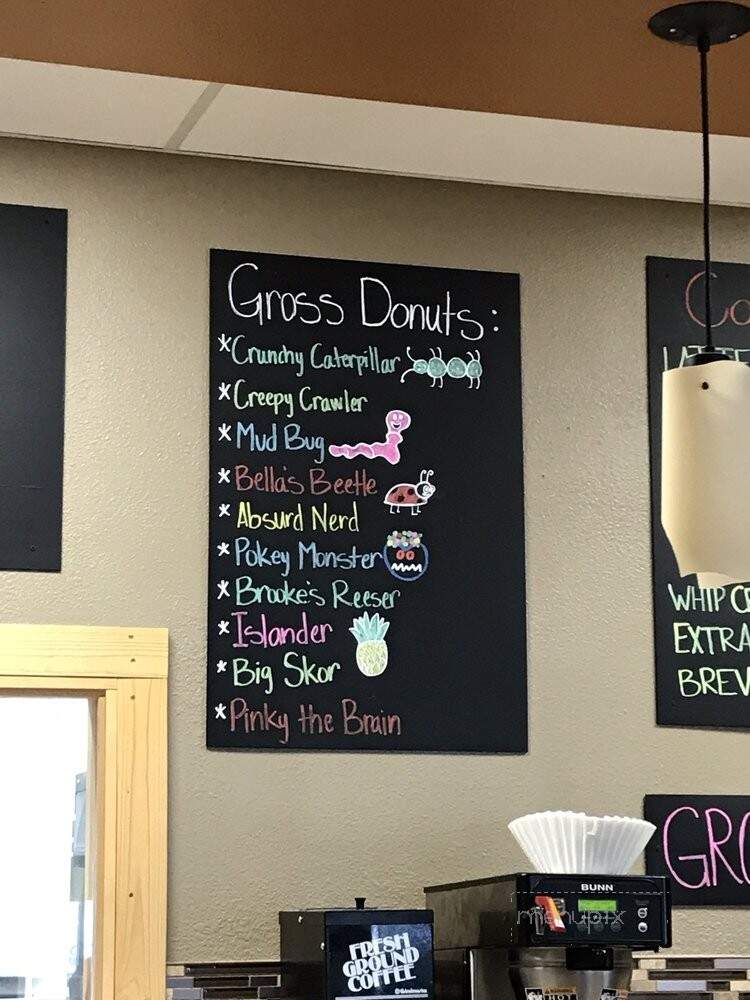 Gross Donuts:
*Crunchy Caterpillar
*Creepy Crawler
*Mud Bug
*Bella's Beetle
*Absurd Nerd
*Pokey Monster
*Brooke's Reeser
*Islander
*Big Skor
*Pinky the Brain
WHIP
EXTRA
BREV
GRO
BUNN
menupix
FRESH
GROUND
COFFEE